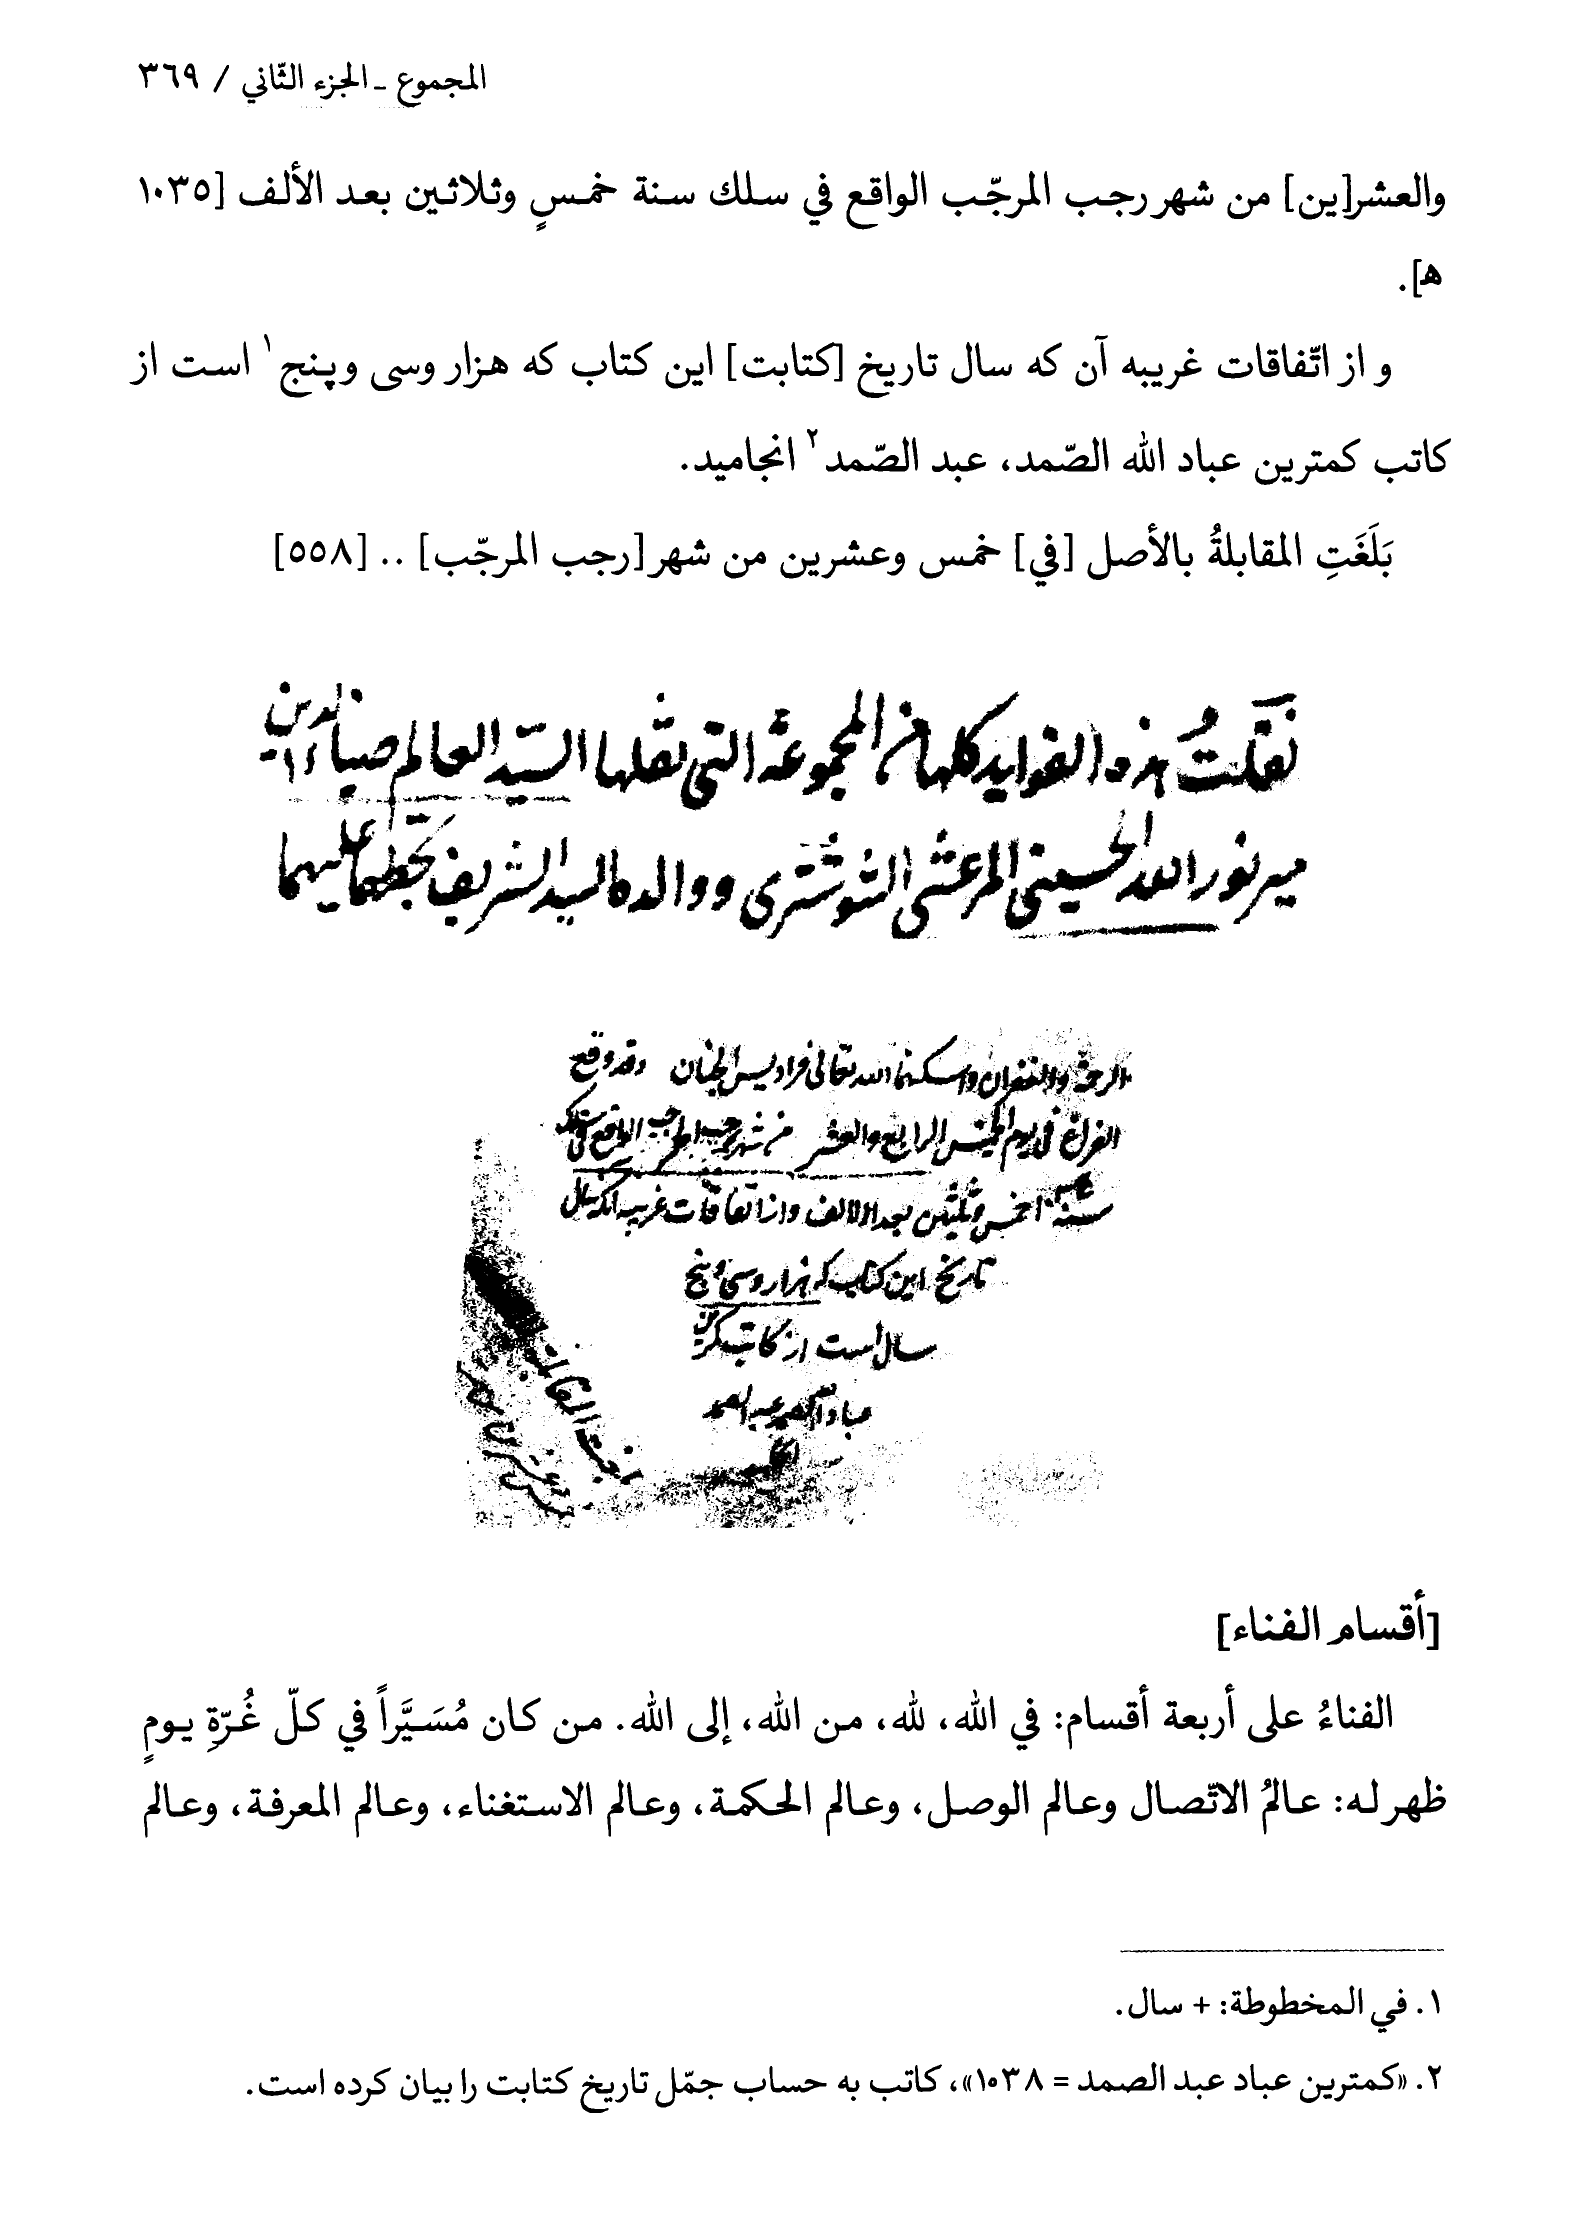 المجموع ـ الجزء الثّاني / ٣٦٩
والعشر[ين] من شهر رجب المرجّب الواقع في سلك سنة خمسٍ وثلاثين بعد الألف [١٠٣٥
ه‍].
و از اتّفاقات غريبه آن كه سال تاريخ [كتابت] اين كتاب كه هزار وسى وپنج١ است از
كاتب كمترين عباد الله الصّمد، عبد الصّمد٢ انجاميد.
بَلَغَتِ المقابلةُ بالأصل [في] خمس وعشرين من شهر [رجب المرجّب] .. [٥٥٨]
نقلتُ هذه الفوايد كلها من المجموعة التي نقلها السيّد العالم ضياء الدين
مير نور الله الحسيني المرعشي الشوشتري ووالده السيد الشريف بخطهما عليهما
الرحمة والغفران واسكنهما الله تعالى فراديس الجنان وقد وقع
الفراغ في يوم الخميس الرابع والعشر من شهر رجب المرجب الواقع في سلك
سنة خمس وثلثين بعد الالف واز اتفاقات غريبه آنكه سال
تاريخ اين كتاب كه هزار وسى وپنج
سال است از كاتب كمترين
عباد الله الصمد عبد الصمد
بلغت المقابلة
خمس وعشرين من شهر
[أقسام الفناء]
الفناءُ على أربعة أقسام: في الله، لله، من الله، إلى الله. من كان مُسَيَّراً في كلّ غُرّةِ يومٍ
ظهر له: عالمُ الاتّصال وعالم الوصل، وعالم الحكمة، وعالم الاستغناء، وعالم المعرفة، وعالم
١. في المخطوطة: + سال.
٢. «كمترين عباد عبد الصمد = ١٠٣٨»، كاتب به حساب جمّل تاريخ كتابت را بيان كرده است.